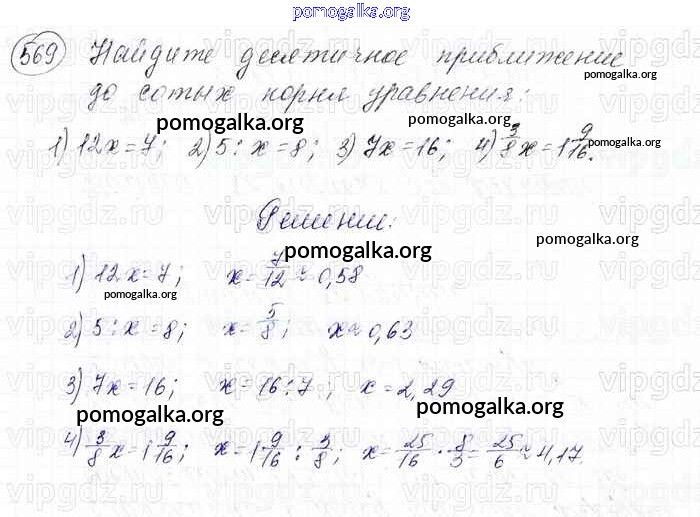 pomogalka.org
569 Найдите десятичное приближение
pomogalka.org
до сотых корня уравнения:
pomogalka.org
1) 12x=7; 2) 5:x=8; 3) 7x=16; 4) 3/8 x=1 9/16.
pomogalka.org
Решение:
pomogalka.org
pomogalka.org
1) 12x=7; x=7/12≈0,58
pomogalka.org
2) 5:x=8; x=5/8; x≈0,63
3) 7x=16; x=16:7; x=2,29
pomogalka.org
pomogalka.org
4) 3/8 x=1 9/16; x=1 9/16 : 3/8; x=25/16 · 8/3=25/6≈4,17.